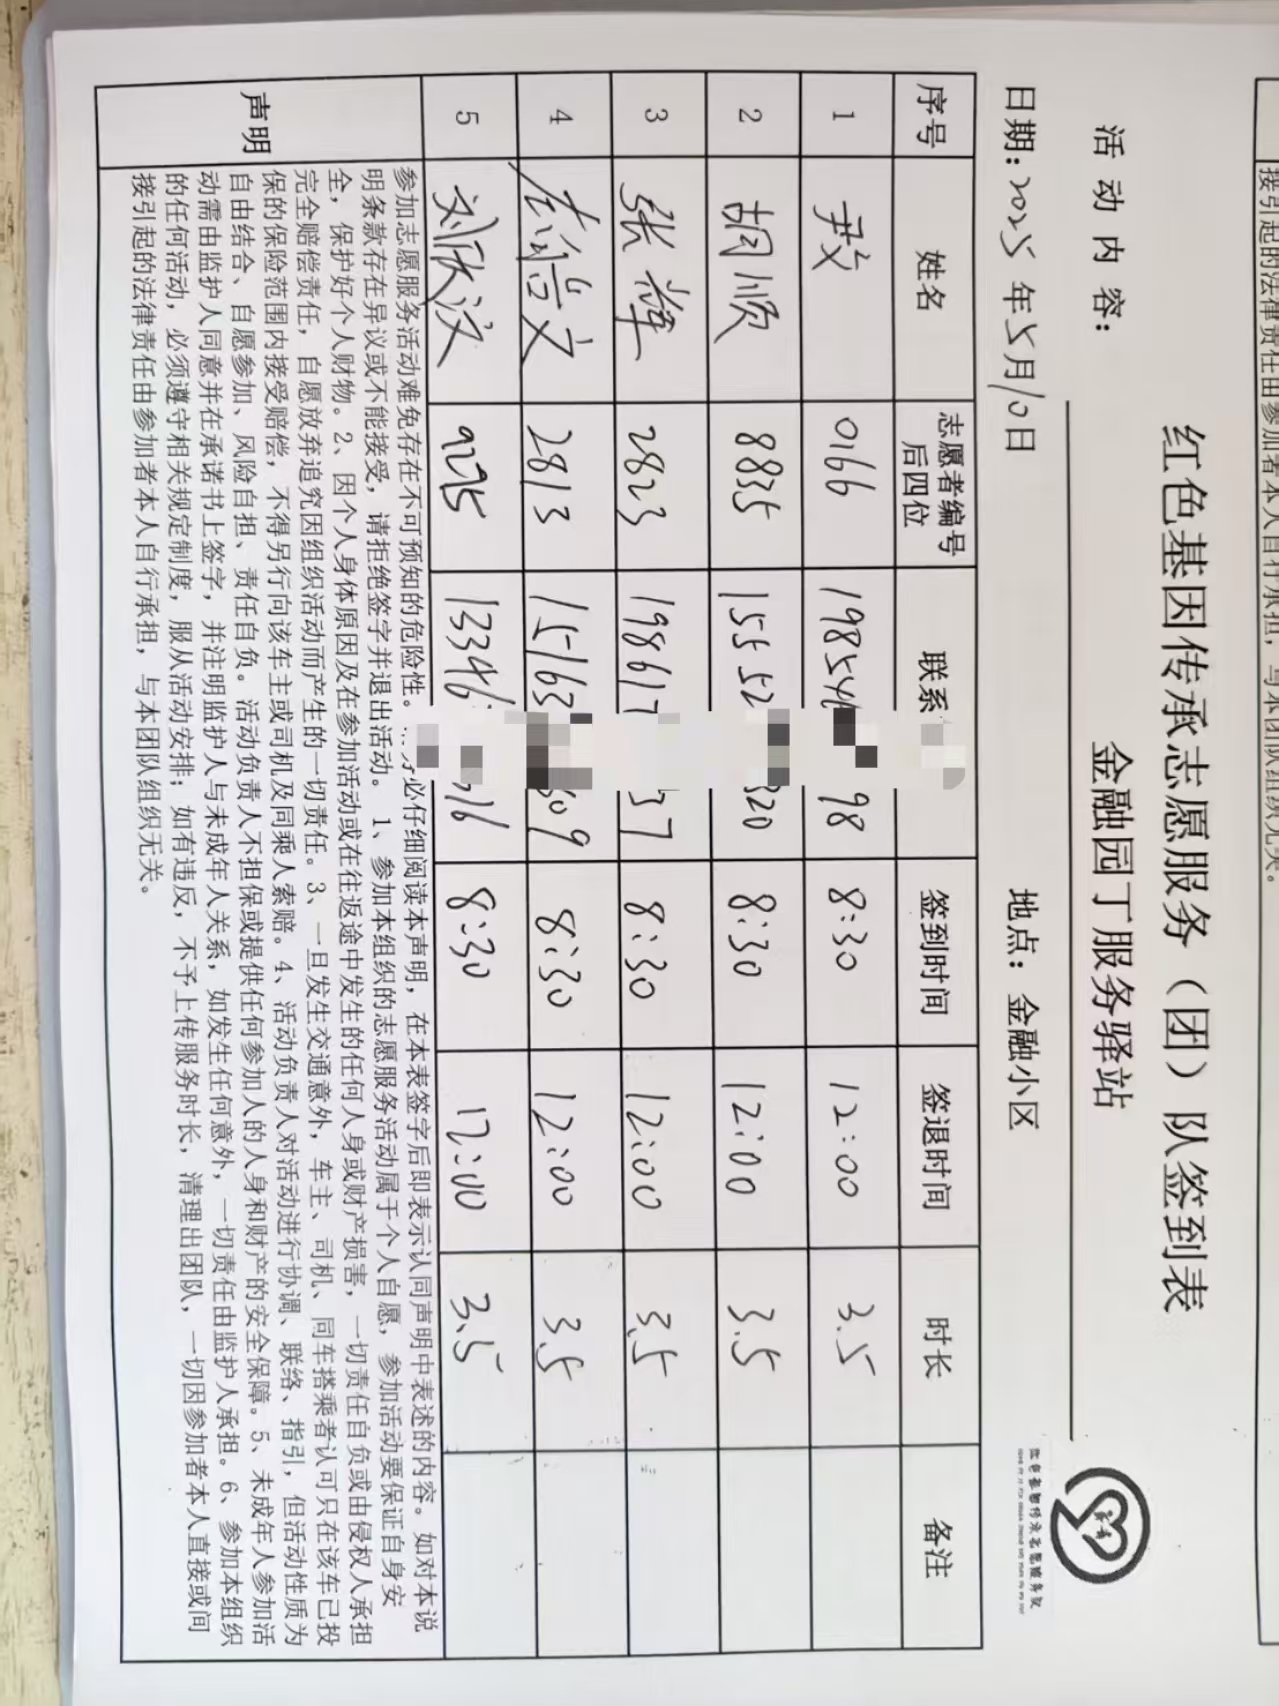 红色基因传承志愿服务（团）队签到表
活动内容： 金融园丁服务驿站
日期: 2025年5月10日 地点：金融小区
序号 姓名 志愿者编号后四位 联系 签到时间 签退时间 时长 备注
1 尹 0166 19854 98 8:30 12:00 3.5
2 胡顺 8835 15552 320 8:30 12:00 3.5
3 张 2823 198617 37 8:30 12:00 3.5
4 文 2813 15163 09 8:30 12:00 3.5
5 刘欣汶 9295 13346 316 8:30 12:00 3.5
声明
参加志愿服务活动难免存在不可预知的危险性。 必仔细阅读本声明，在本表签字后即表示认同声明中表述的内容。如对本说
明条款存在异议或不能接受，请拒绝签字并退出活动。1、参加本组织的志愿服务活动属于个人自愿，参加活动要保证自身安
全，保护好个人财物。2、因个人身体原因及在参加活动或在往返途中发生的任何人身或财产损害，一切责任自负或由侵权人承担
完全赔偿责任，自愿放弃追究因组织活动而产生的一切责任。3、一旦发生交通意外，车主、司机、同车搭乘者认可只在该车已投
保的保险范围内接受赔偿，不得另行向该车主或司机及同乘人索赔。4、活动负责人对活动进行协调、联络、指引，但活动性质为
自由结合、自愿参加、风险自担、责任自负。活动负责人不担保或提供任何参加人的人身和财产的安全保障。5、未成年人参加活
动需由监护人同意并在承诺书上签字，并注明监护人与未成年人关系，如发生任何意外，一切责任由监护人承担。6、参加本组织
的任何活动，必须遵守相关规定制度，服从活动安排；如有违反，不予上传服务时长，清理出团队，一切因参加者本人直接或间
接引起的法律责任由参加者本人自行承担，与本团队组织无关。
接引起的法律责任由参加者本人自行承担，与本团队组织无关。